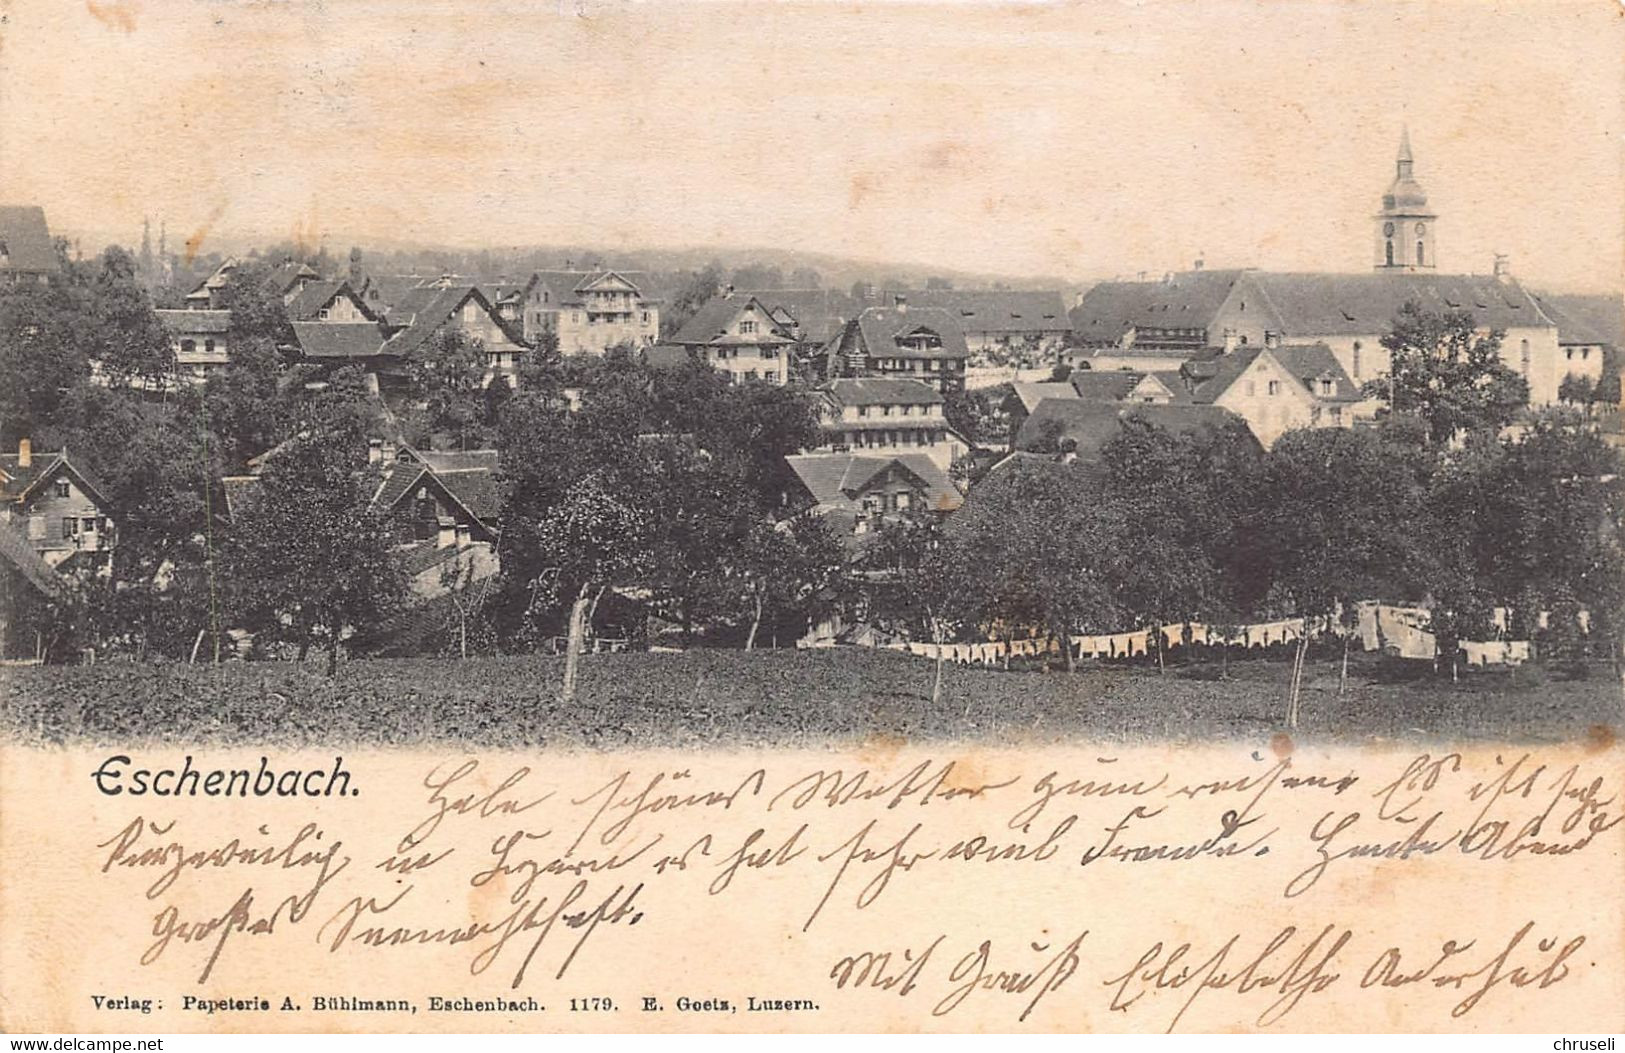 Eschenbach.
Habe schönes Wetter zum reisene Es ist sehr
Kurzweilig in Luzern es hat sehr viel Fremde. Heute Abend
Großes Seenachtfest.
Mit Gruß Elisabetha Anderhub
Verlag: Papeterie A. Bühlmann, Eschenbach. 1179. E. Goetz, Luzern.
www.delcampe.net
chruseli